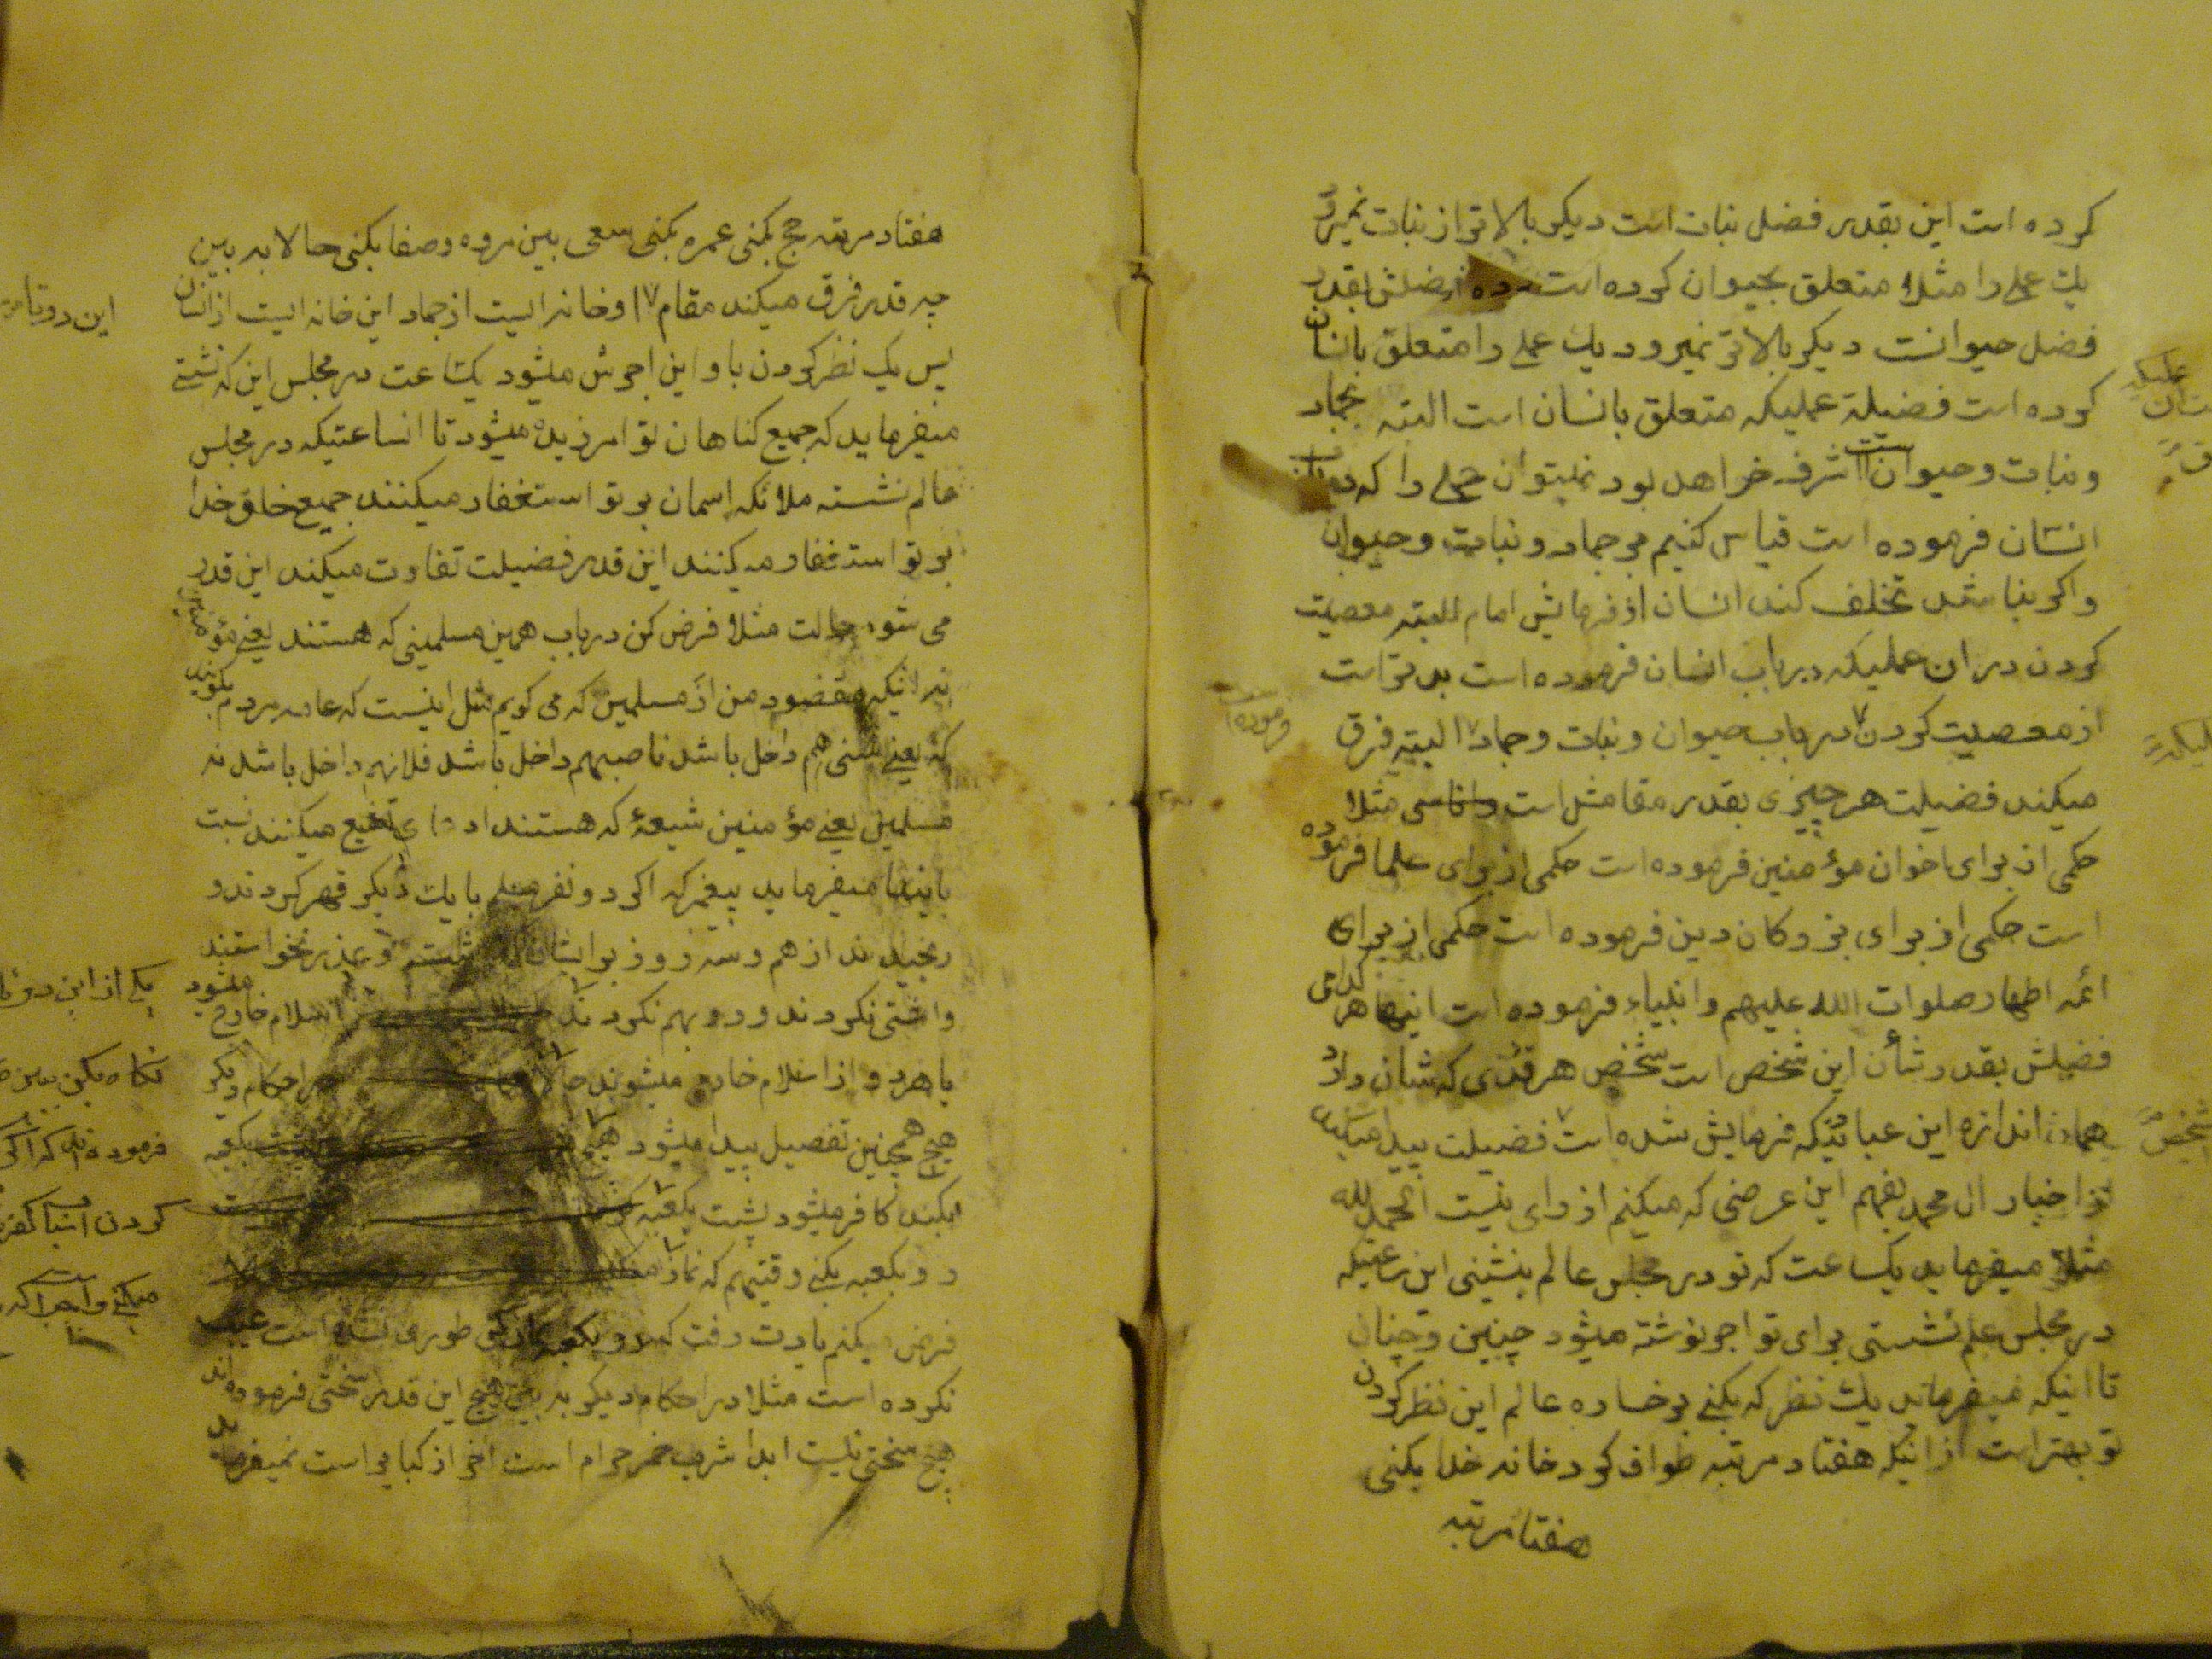 کرده است این بقدر فضل نبات است دیکر بالاتر از نبات نمیرود
یك عملی را مثلا متعلق بحیوان کرده است فضلش بقدر
فضل حیوانست دیکر بالاتر نمیرود یك عملی را متعلق بانسان
کرده است فضیلة عملیکه متعلق بانسان است البته بجماد
ونبات وحیوان اشرف خواهد بود نمیتوان حملی را که
انسان فرموده است قیاس کنیم بر جماد و نبات و حیوان
واکر بنا باشد تخلف کند انسان از فرمایش امام البته معصیت
کردن در ان عملیکه در باب انسان فرموده است بدتر است
از معصیت کردن در باب حیوان و نبات و جماد البته فرق
فرموده است
میکند فضیلت هر چیزی بقدر مقامش است مثلا
حکمی از برای اخوان مؤمنین فرموده است حکمی از برای علما فرموده
است حکمی از برای بزرکان دین فرموده است حکمی از برای
ائمه اطهار صلوات الله علیهم وانبیاء فرموده است اینها هر کدامی
فضیلش بقدر شأن این شخص است شخص هر قدری که شان دارد
همان اندازه این عباد تیکه فرمایش شده است فضیلت پیدا میکند
از اخبار ال محمد بفهم این عرضی که میکنم از رای نیست الحمد لله
مثلا میفرماید یکساعت که تو در مجلس عالم بنشینی این ساعتیکه
در مجلس علم نشستی برای تو اجر نوشته میشود چنین وچنان
تا اینکه میفرماید یك نظر که بکنی بر خساره عالم این نظر کردن
تو بهتر است از اینکه هفتاد مرتبه طواف کرد خانه خدا بکنی
هفتاد مرتبه
هفتاد مرتبه حج بکنی عمره بکنی سعی بین مروه وصفا بکنی حالا به بین
چه قدر فرق میکند مقام او خانه ایست از جماد این خانه ایست از انسان
پس یک نظر کردن باو این اجرش میشود یکساعت در مجلس این که نشستی
میفرماید که جمیع کناهان تو امرزیده میشود تا انساعتیکه در مجلس
عالم نشسته ملائکه اسمان بر تو استغفار میکنند جمیع خلق خدا
بر تو استغفار میکنند این قدر فضیلت تفاوت میکند این قدر
می شود حالت مثلا فرض کن در باب همین مسلمینی که هستند یعنی مؤمنین
نه اینکه مقصود من از مسلمین که می کویم مثل اینست که عامه مردم بکویند
که یعنی سنی هم داخل باشد ناصبیهم داخل باشد فلانهم داخل باشد نه
مسلمین یعنی مؤمنین شیعۀ که هستند ادعای تشیع میکنند نسبت
باینها میفرماید پیغمبر که اکر دو نفر مسلم با یك دیکر قهر کردند و
رنجیدند از هم وسه روز بر ایشان کذشت و عذر نخواستند
واشتی نکردند و رو بهم نکردند اسلام خارج میشود
یا هردو از اسلام خارج میشوند حالا احکام دیکر
هیچ همچنین تفصیل پیدا میشود
بکند کافر میشود پشت بکعبه
رو بکعبه بکنی وقتیهم که نماز
فرض میکنم یادت رفت که رو بکعبه طوری نشده است عیب
نکرده است مثلا در احکام دیکر به بین هیچ این قدر سختی فرموده اند
هیچ سختی نیست ابدا شرب خمر حرام است اخر از کبایر است نمیفرماید
یکی از این دو تا
نکاه بکن ببین
فرموده اند که اکر
کردن